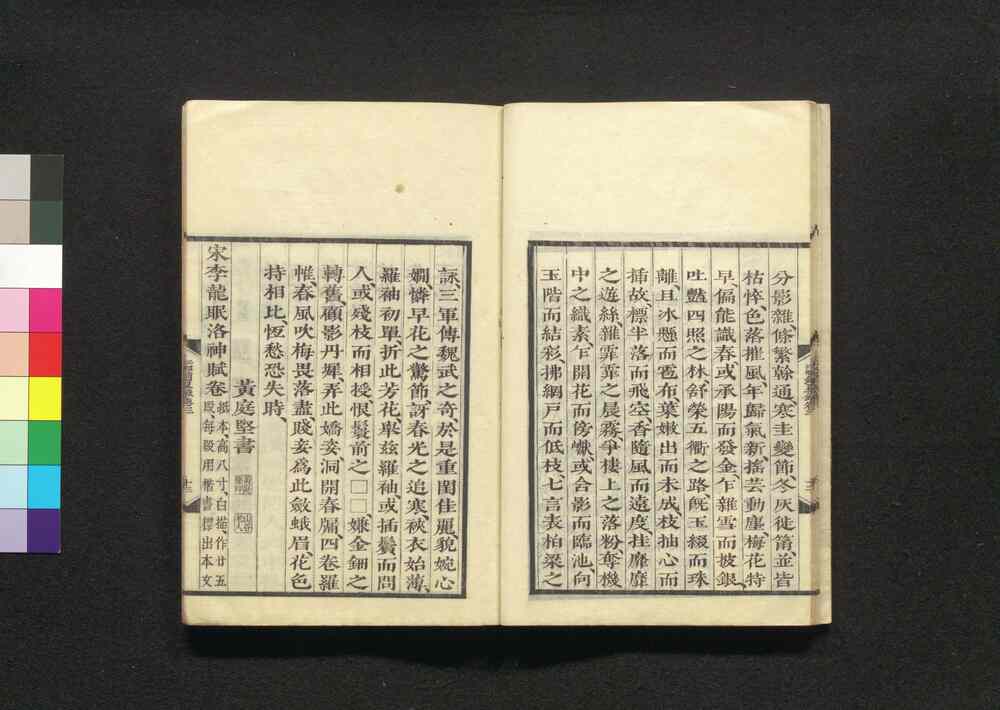 分影雜、條繁幹通、寒圭變節、冬灰徙筩、並皆
枯悴、色落摧風、年歸氣新、搖芸動塵、梅花特
早、偏能識春、或承陽而發金、乍雜雪而披銀、
吐豔四照之林、舒榮五衢之路、既玉綴而珠
離、且冰懸而雹布、葉嫩出而未成、枝抽心而
插故、標半落而飛空、香隨風而遠度、挂靡靡
之遊絲、雜霏霏之晨霧、爭樓上之落粉、奪機
中之織素、乍開花而傍巘、或含影而臨池、向
玉階而結彩、拂網戶而低枝、七言表柏梁之
詠、三軍傳魏武之奇、於是重閨佳麗、貌婉心
嫺、憐早花之驚節、訝春光之追寒、裌衣始薄、
羅袖初單、折此芳花、舉茲羅袖、或插鬢而問
人、或殘枝而相授、恨鬟前之□□、嫌金鈿之
轉舊、顧影丹墀、弄此嬌姿、洞開春牖、四卷羅
帷、春風吹梅畏落盡、賤妾為此斂蛾眉、花色
持相比、恆愁恐失時、
黃庭堅書
宋李龍眠洛神賦卷
紙本、高八寸、白描、作廿五
段、每段用楷書標出本文
十三